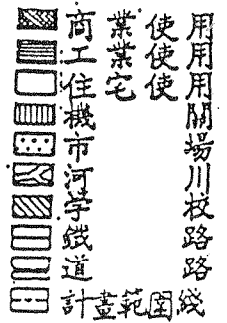 商業使用
工業使用
住宅使用
機關
市場
河川
学校
鐵路
道路
計畫範囲綫